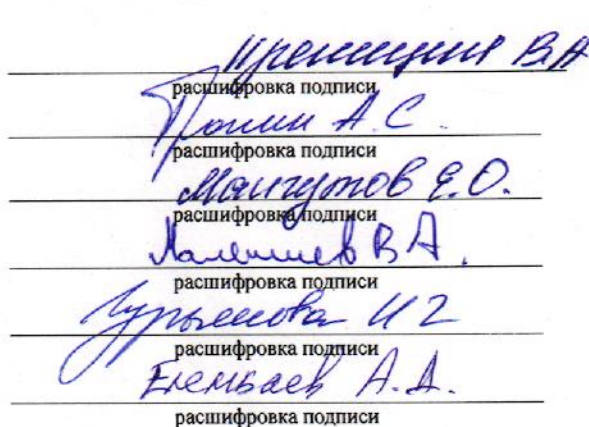 В.А
расшифровка подписи
Пронин А.С.
расшифровка подписи
Мангутов Е.О.
расшифровка подписи
В А.
расшифровка подписи
И Г
расшифровка подписи
Елембаев А.А.
расшифровка подписи